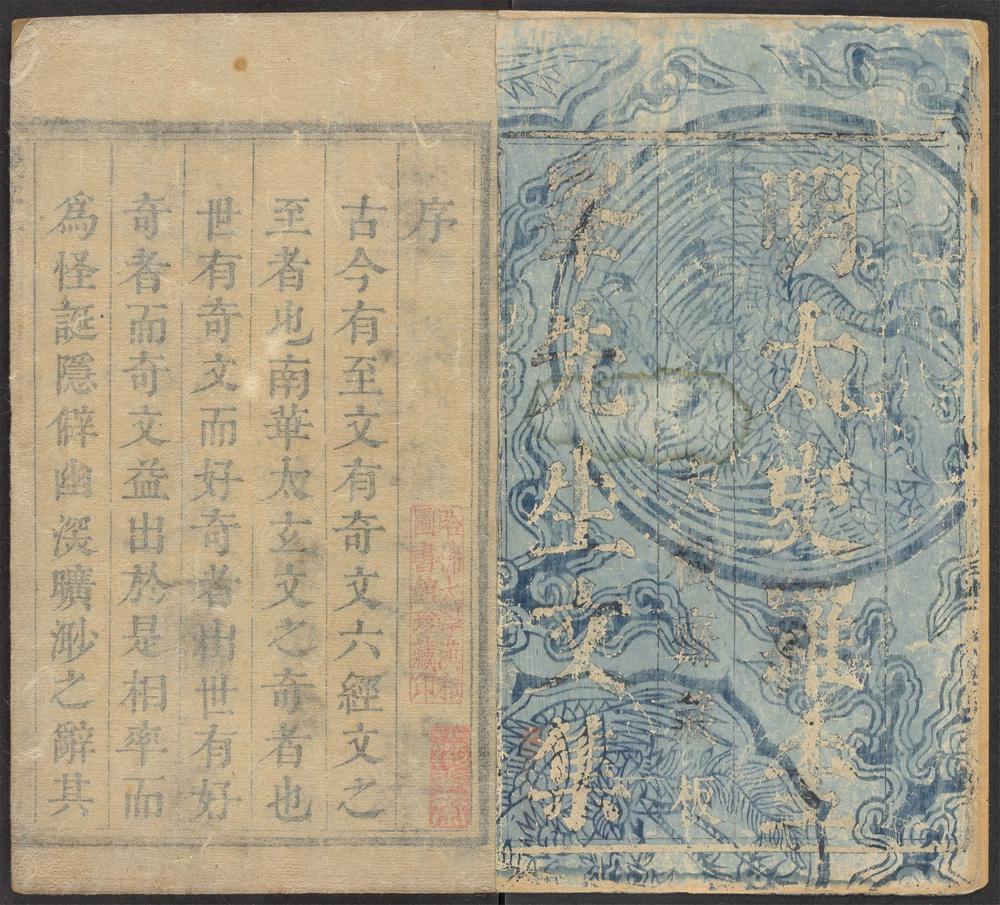 明太史羅圭
藏板
峯先生文集
序
哈佛大學漢和
圖書館珍藏印
古今有至文有奇文六經文之
至者也南華太玄文之奇者也
世有奇文而好奇者出世有好
奇者而奇文益出於是相率而
爲怪誕隱僻幽深曠渺之辭其